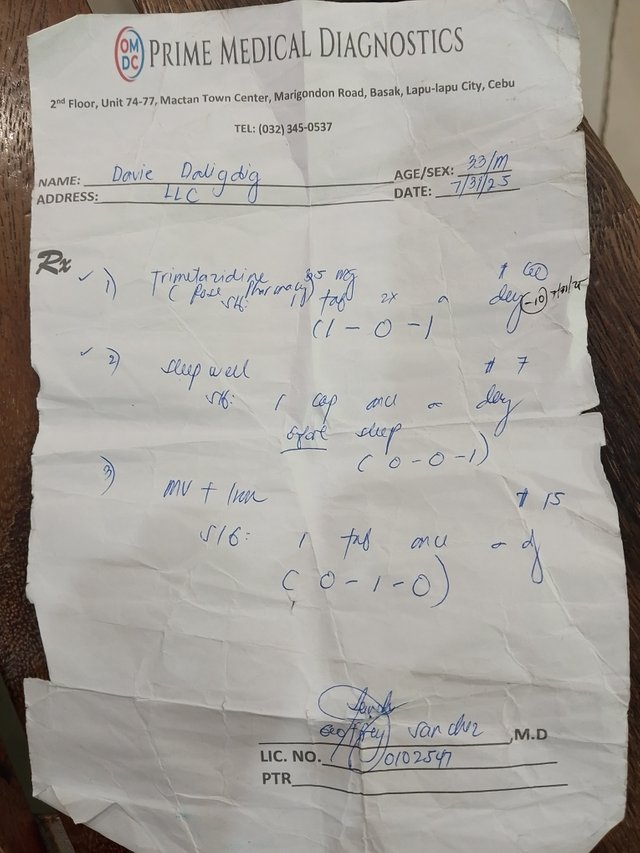 OM
DC PRIME MEDICAL DIAGNOSTICS
2nd Floor, Unit 74-77, Mactan Town Center, Marigondon Road, Basak, Lapu-lapu City, Cebu
TEL: (032) 345-0537
NAME: Davie Daligdig AGE/SEX: 33/M
ADDRESS: LLC DATE: 7/31/25
Rx
✓ 1) Trimetazidine 35 mg # 60
(Rose Pharmacy)
SIG: 1 tab 2x a day -10 7/31/25
(1 - 0 - 1
✓ 2) Sleepwell # 7
SIG: 1 cap once a day
before sleep
(0 - 0 - 1)
3) MV + Iron # 15
SIG: 1 tab once a d
(0 - 1 - 0)
Geoffrey Sanchez, M.D
LIC. NO. 0102547
PTR